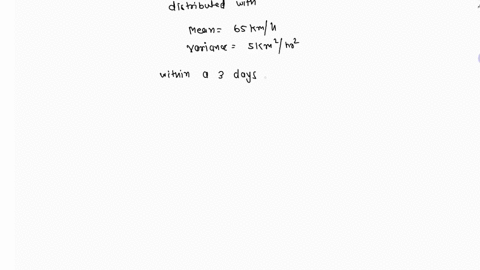 distributed with
mean = 65 km/h
variance = 5 km²/hr²
within a 3 days.